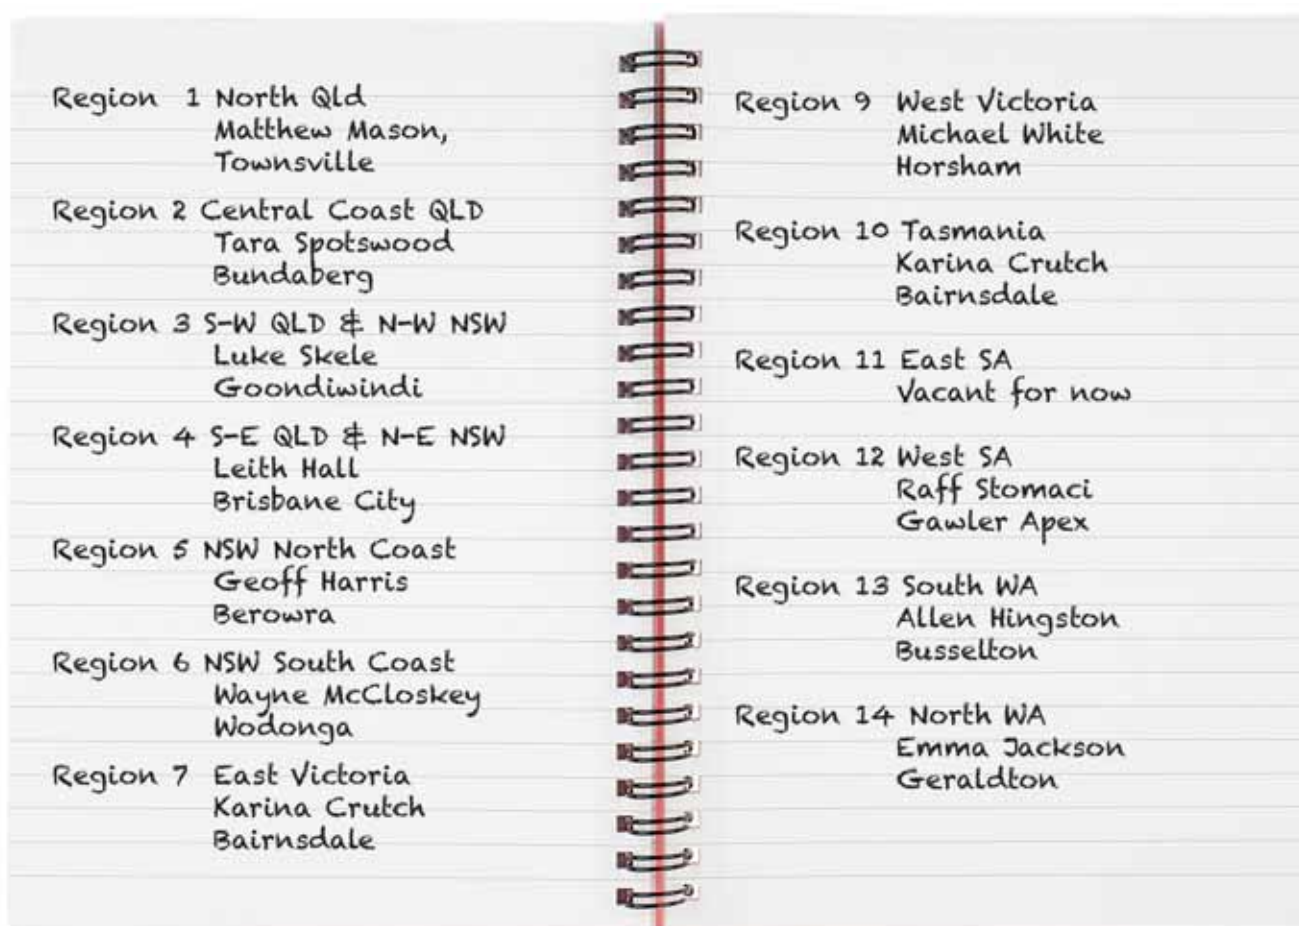 Region 1 North Qld
Matthew Mason,
Townsville
Region 2 Central Coast QLD
Tara Spotswood
Bundaberg
Region 3 S-W QLD & N-W NSW
Luke Skele
Goondiwindi
Region 4 S-E QLD & N-E NSW
Leith Hall
Brisbane City
Region 5 NSW North Coast
Geoff Harris
Berowra
Region 6 NSW South Coast
Wayne McCloskey
Wodonga
Region 7 East Victoria
Karina Crutch
Bairnsdale
Region 9 West Victoria
Michael White
Horsham
Region 10 Tasmania
Karina Crutch
Bairnsdale
Region 11 East SA
Vacant for now
Region 12 West SA
Raff Stomaci
Gawler Apex
Region 13 South WA
Allen Hingston
Busselton
Region 14 North WA
Emma Jackson
Geraldton